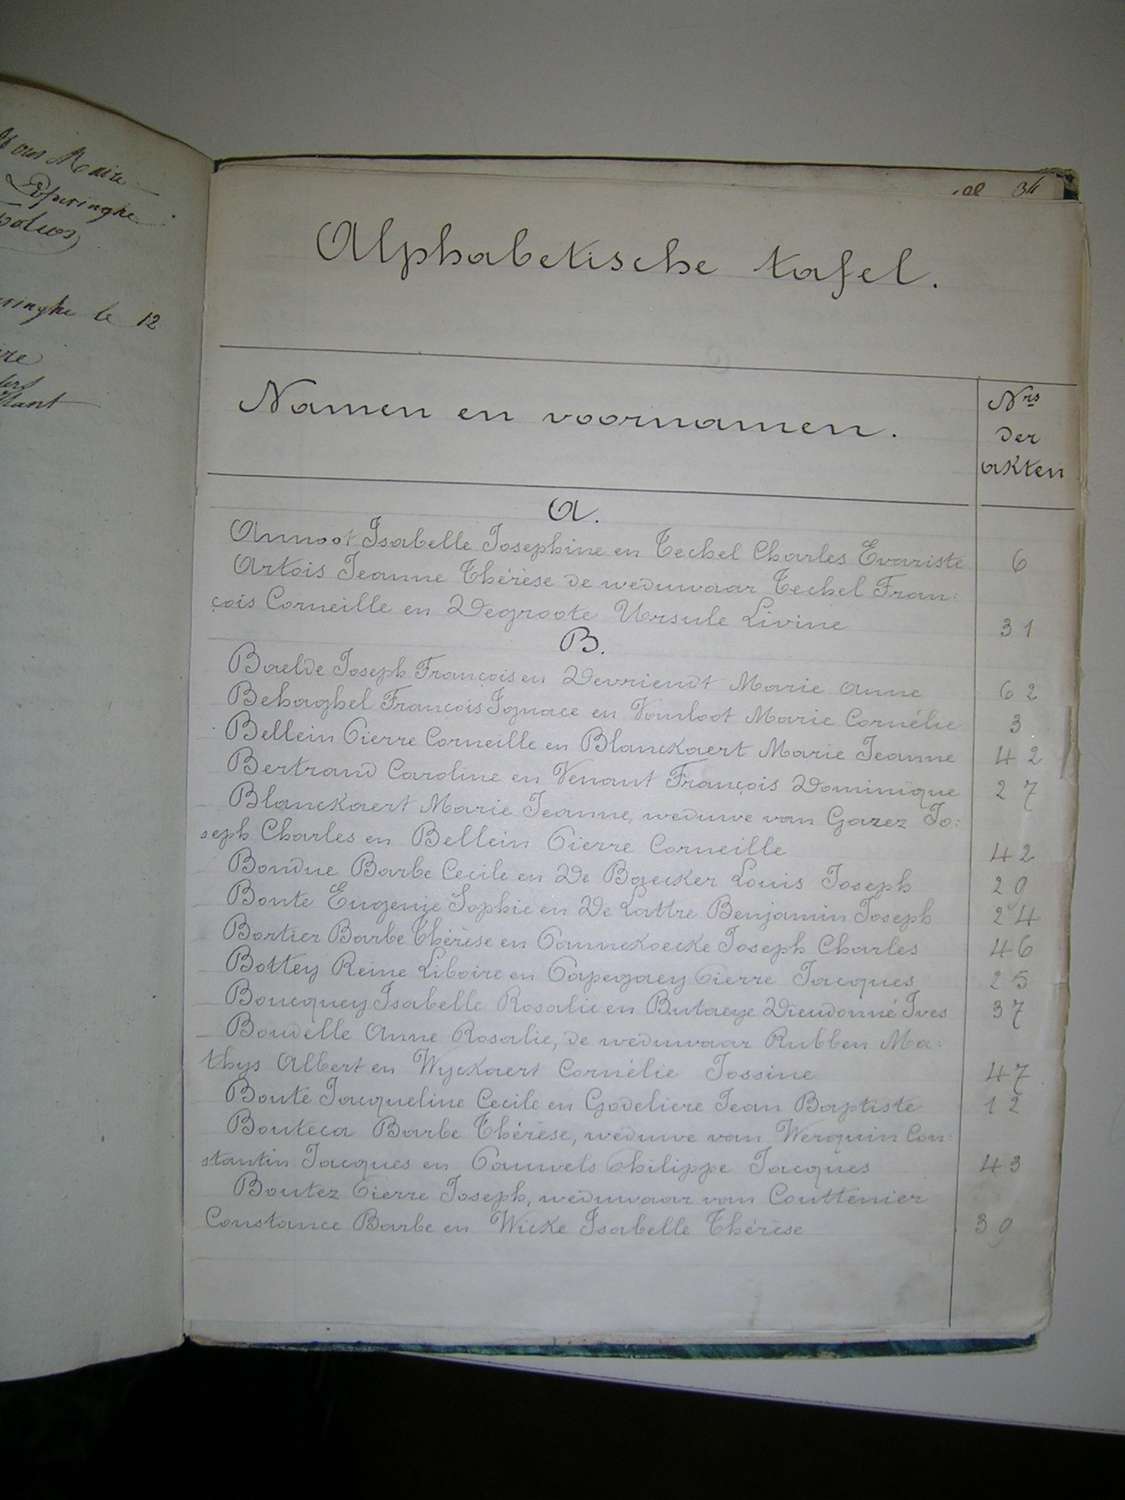 Maire
Poperinghe
le 12
34
Alphabetische tafel.
Namen en voornamen.
Nrs
der
akten
A.
Annoot Isabelle Josephine en Techel Charles Evariste 6
Artois Jeanne Thérèse de weduwaar Techel Fran-
çois Corneille en Degroote Ursule Livine 31
B.
Baelde Joseph François en Devriendt Marie Anne 62
Behaghel François Ignace en Vanloot Marie Cornélie 3
Bellein Pierre Corneille en Blanckaert Marie Jeanne 42
Bertrand Caroline en Venant François Dominique 27
Blanckaert Marie Jeanne, weduwe van Garez Jo-
seph Charles en Bellein Pierre Corneille 42
Bondue Barbe Cecile en De Baecker Louis Joseph 20
Bonte Eugenie Sophie en De Lattre Benjamin Joseph 24
Bortier Barbe Thérèse en Pannekoecke Joseph Charles 46
Bottey Reine Liboire en Papegaey Pierre Jacques 25
Boucquey Isabelle Rosalie en Butaeye Dieudonné Ives 37
Boudelle Anne Rosalie, de weduwaar Rubben Ma-
thys Albert en Wyckaert Cornélie Jossine 47
Bouté Jacqueline Cecile en Godeliere Jean Baptiste 12
Bouteca Barbe Thérèse, weduwe van Werquin Con-
stantin Jacques en Pauwels Philippe Jacques 43
Boutez Pierre Joseph, weduwaar van Couttenier
Constance Barbe en Wicke Isabelle Thérèse 30